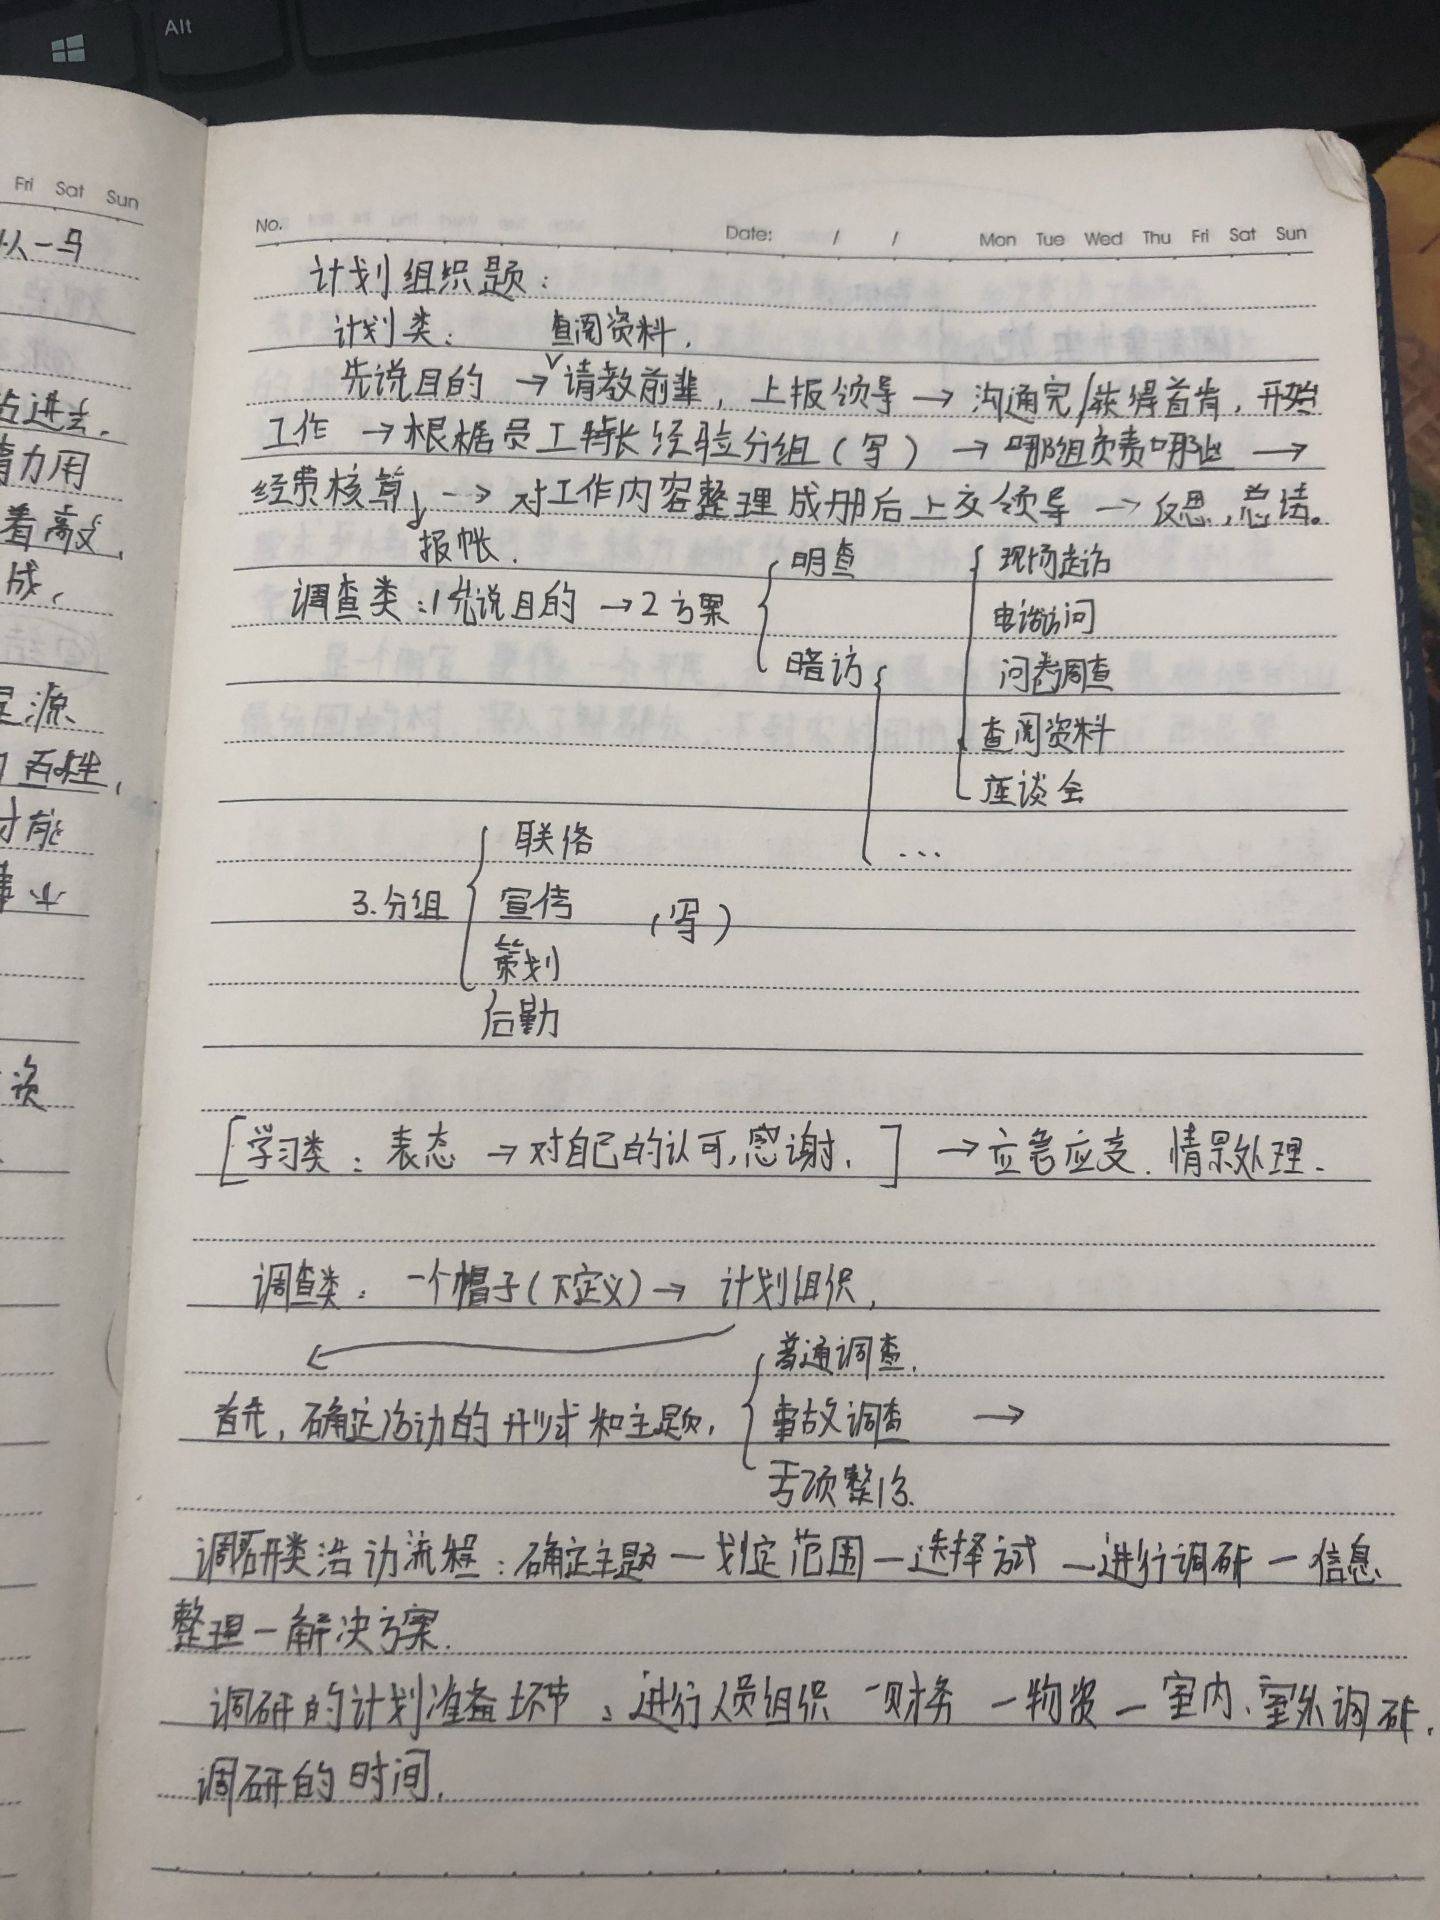 Alt
Fri Sat Sun
No.
Date: / / Mon Tue Wed Thu Fri Sat Sun
计划组织题：
计划类： 查阅资料.
先说目的 → 请教前辈，上报领导 → 沟通完/获得首肯，开始
工作 → 根据员工特长经验分组（写） → 哪组负责哪些 →
经费核算 → 对工作内容整理成册后上交领导 → 反思，总结。
报帐.
调查类：1先说目的 → 2方案
明查
暗访
现场走访
电话访问
问卷调查
查阅资料
座谈会
...
3.分组
联络
宣传
策划
后勤
（写）
[学习类：表态 → 对自己的认可，感谢.] → 应急应变.情景处理.
调查类：一个帽子(下定义) → 计划组织，
首先，确定活动的形式和主题，
普通调查.
事故调查 →
专项整治.
调研类活动流程：确定主题—划定范围—选择方式—进行调研—信息
整理—解决方案.
调研的计划准备环节：进行人员组织—财务—物资—室内、室外调研.
调研的时间.
占进去.
力用
着高效,
成,
源
百姓,
才能